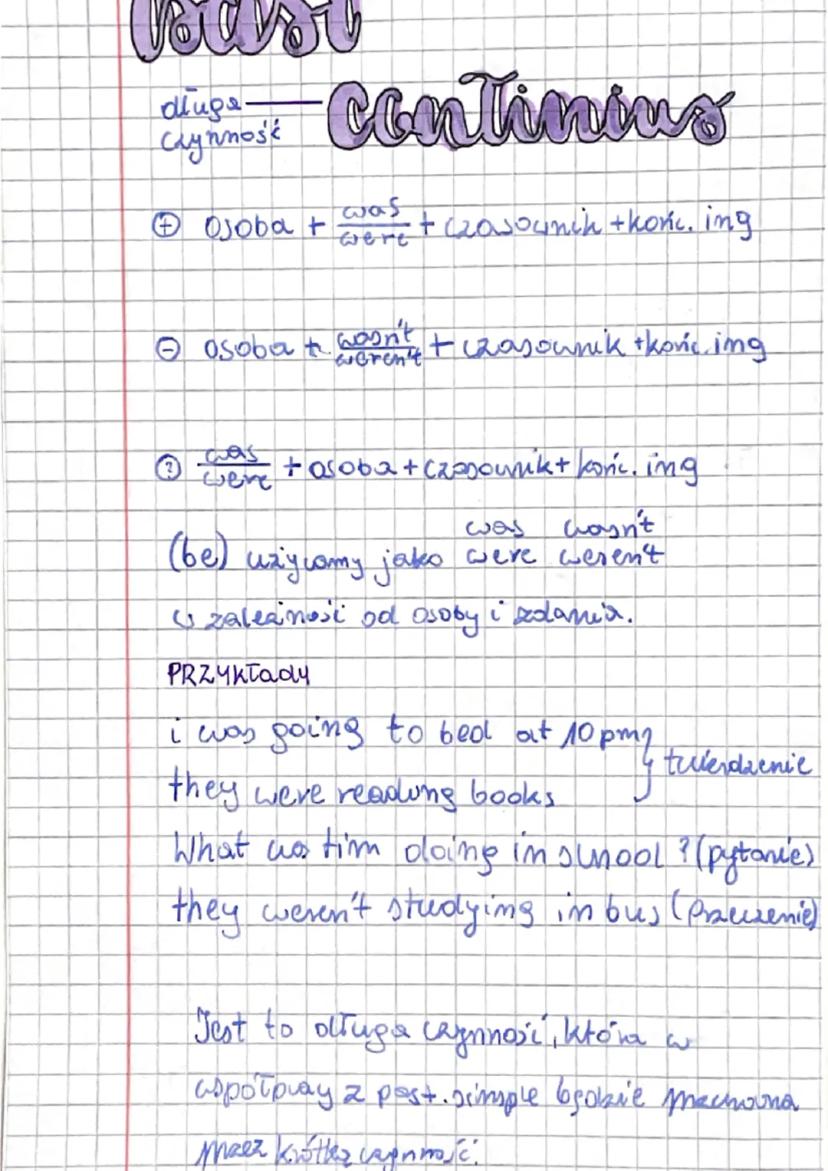 past
długa
czynność
continius
+ osoba + was/were + czasownik + końc. ing
- osoba + wasn't/weren't + czasownik + końc. ing
? was/were + osoba + czasownik + końc. ing
was wasn't
(be) używamy jako were weren't
w zależności od osoby i zdania.
PRZYKŁady
i was going to bed at 10 pm
twierdzenie
they were reading books
What was tim doing in school? (pytanie)
they weren't studying in bus (przeczenie)
Jest to długa czynność, która w
współpracy z past. simple będzie przerwana
przez krótką czynność.